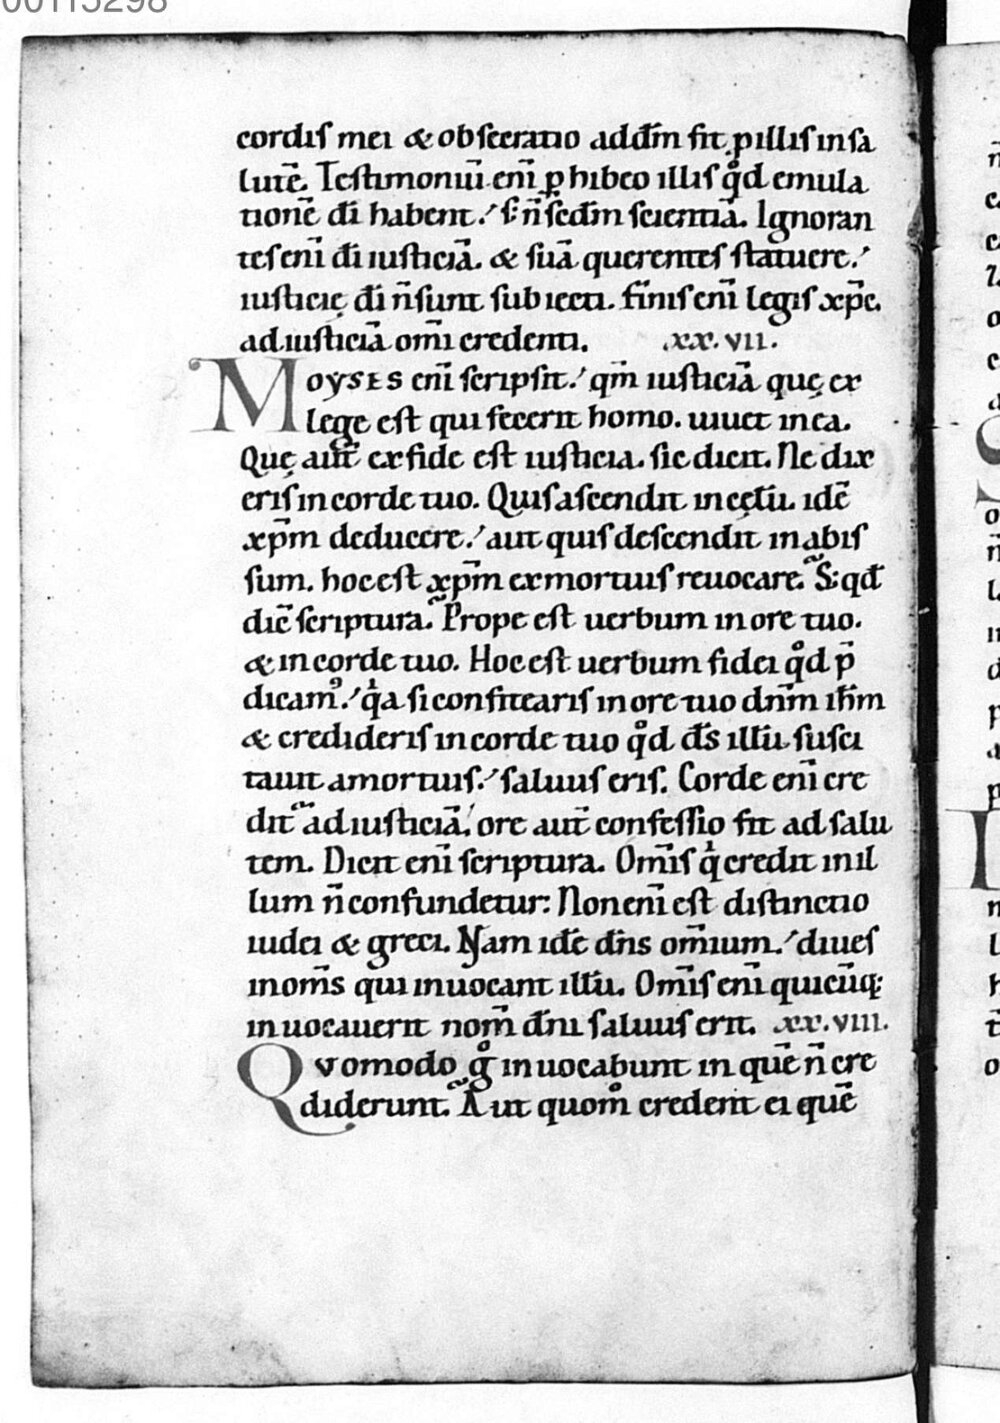 00115298
cordis mei & obsecratio ad dm̄ fit p illis in sa
lutē. Testimoniū enī ꝑhibeo illis qd̊ emula
tionē dī habent. s; n̄ scdm̄ scientiā. Ignoran
tes enī dī iusticiā. & suā querentes statuere.
iusticię dī n̄ sunt subiecti. finis enī legis xp̄c.
ad iusticiā omī credenti. .xx.vii.
MOYSES enī scripsit. qm̄ iusticiā quę ex
lege est qui fecerit homo. uiuet in ea.
Quę aut̄ ex fide est iusticia. sic dicit. Ne dix
eris in corde tuo. Quis ascendit in cęlū. idē
xp̄m deducere. aut quis descendit in abis
sum. hoc est xp̄m ex mortuis reuocare. S; qđ
dic̄ scriptura. Prope est uerbum in ore tuo.
& in corde tuo. Hoc est uerbum fidei qd̊ p̄
dicam᾽. qa si confitearis in ore tuo dnm̄ ih̄m
& credideris in corde tuo qd̊ ds̄ illū susci
tauit a mortuis. saluus eris. Corde enī cre
dit̃ ad iusticiā. ore aut̄ confessio fit ad salu
tem. Dicit enī scriptura. Om̄is qi credit in il
lum n̄ confundetur. Non enī est distinctio
iudei & greci. Nam idē dn̄s om̄ium. diues
in om̄s qui inuocant illū. Om̄is enī quicūq;
inuocauerit nom̄ dn̄i saluus erit. xx.viii.
Quomodo g̊ inuocabunt in quē n̄ cre
diderunt. Aut quom̊ credent ei quē